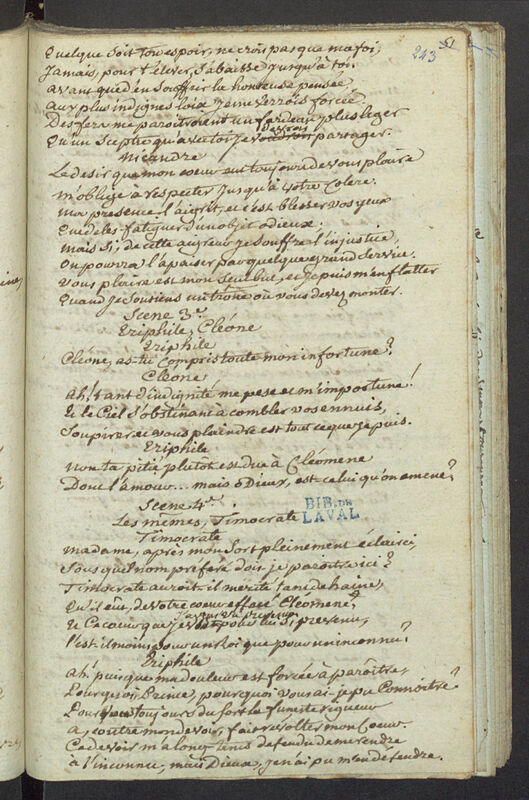 51
243
Quelque soit ton espoir, ne crois pas que ma foi,
Jamais, pour t'élever, s'abaisse jusqu'à toi.
avant que d'en souffrir la honteuse pensée
aux plus indignes loix je me verrois forcée
Des fers me paroîtroient un fardeau plus léger
Qu'un Sceptre qu'avec toi je devrois partager.
Nicandre
Le desir que mon coeur eut toujours de vous plaire
m'oblige à respecter jusqu'à votre Colere.
ma presence l'aigrit, et c'est blesser vos yeux
Que de les fatiguer d'un objet odieux.
mais si, de cette aigreur je souffre l'injustice,
On pourra l'apaiser par quelque grand Service.
Vous plaire est mon seul but, et je puis m'en flatter
Quand je soutiens un trône où vous devez monter.
Scene 3e.
Eriphile, Cléone
Eriphile
Cléone, as-tu compris toute mon infortune?
Cleone
Ah! tant d'indignité me pese et m'importune!
Et le Ciel s'obstinant à combler vos ennuis,
Soupirer, et vous plaindre est tout ce que je puis.
Eriphile
Non ta pitié plutôt est due à Cléomene
Dont l'amour... mais ô Dieux, est-ce lui qu'on amene?
Scene 4e.
Les mêmes, Timocrate
BIB. DE
LAVAL
Timocrate
madame, après mon Sort pleinement éclairci,
Sous quel nom préféré dois-je paroître ici?
Timocrate auroit-il mérité tant de haine,
Qu'il eût, de votre coeur effacé Cléomene?
Et Ce coeur que j'avois vu pour lui prévenu,
l'est-il moins pour un Roi que pour un inconnu?
Eriphile
Ah! puisque ma douleur est forcée à paroître,
Pourquoi, Prince, pourquoi vous ai-je pu Connoître?
toujours du Sort la funeste rigueur
a, contre mon devoir, fait révolter mon Coeur.
Ce devoir m'a long-tems defendu de me rendre
à l'inconnu, mais Dieux, j'en ai pu m'en défendre.